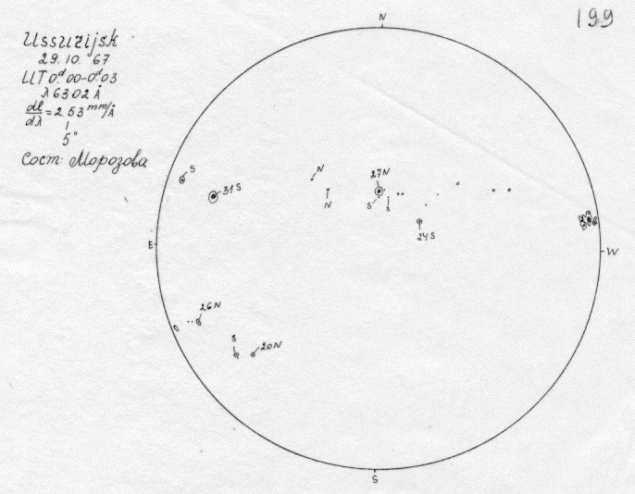 199
Ussurijsk
29. 10. 67
UT 0ᵈ.00-0ᵈ.03
λ 6302 Å
dl/dλ = 2.53 mm/Å
1
5"
Сост. Морозова
N
S
31S
N
N
27N
S
S
24S
E
W
26N
20N
S